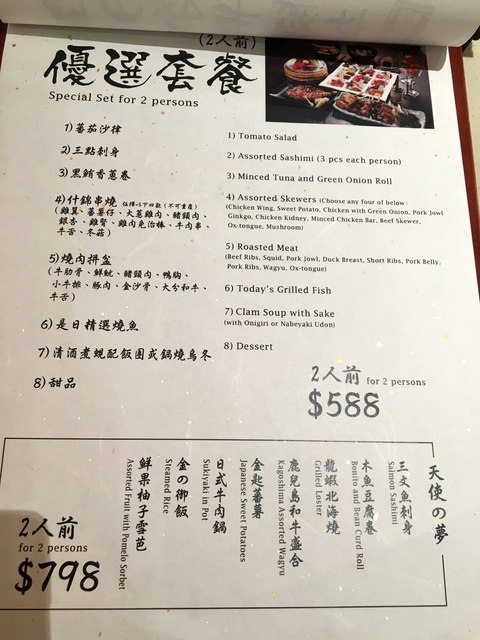 (2人前)
優選套餐
Special Set for 2 persons
1)蕃茄沙律
2)三點刺身
3)黑鮪香蔥卷
4)什錦串燒 任擇以下四款(不可重覆)
(雞翼、蕃薯仔、大蔥雞肉、豬頸肉、
銀杏、雞腎、雞肉免治棒、牛肉串、
牛舌、冬菇)
5)燒肉拼盆
(牛肋骨、鮮魷、豬頸肉、鴨胸、
小牛排、豚肉、金沙骨、大分和牛、
牛舌)
6)是日精選燒魚
7)清酒煮蜆配飯團或鍋燒烏冬
8)甜品
1) Tomato Salad
2) Assorted Sashimi (3 pcs each person)
3) Minced Tuna and Green Onion Roll
4) Assorted Skewers (Choose any four of below)
(Chicken Wing, Sweet Potato, Chicken with Green Onion, Pork Jowl
Ginkgo, Chicken Kidney, Minced Chicken Bar, Beef Skewer,
Ox-tongue, Mushroom)
5) Roasted Meat
(Beef Ribs, Squid, Pork Jowl, Duck Breast, Short Ribs, Pork Belly,
Pork Ribs, Wagyu, Ox-tongue)
6) Today's Grilled Fish
7) Clam Soup with Sake
(with Onigiri or Nabeyaki Udon)
8) Dessert
2人前 for 2 persons
$588
天使の夢
三文魚刺身
Salmon Sashimi
木魚豆腐卷
Bonito and Bean Curd Roll
龍蝦北海燒
Grilled Loster
鹿兒島和牛盛合
Kagoshima Assorted Wagyu
金匙蕃薯
Japanese Sweet Potatoes
日式牛肉鍋
Sukiyaki in Pot
金の御飯
Steamed Rice
鮮果柚子雪葩
Assorted Fruit with Pomelo Sorbet
2人前
for 2 persons
$798